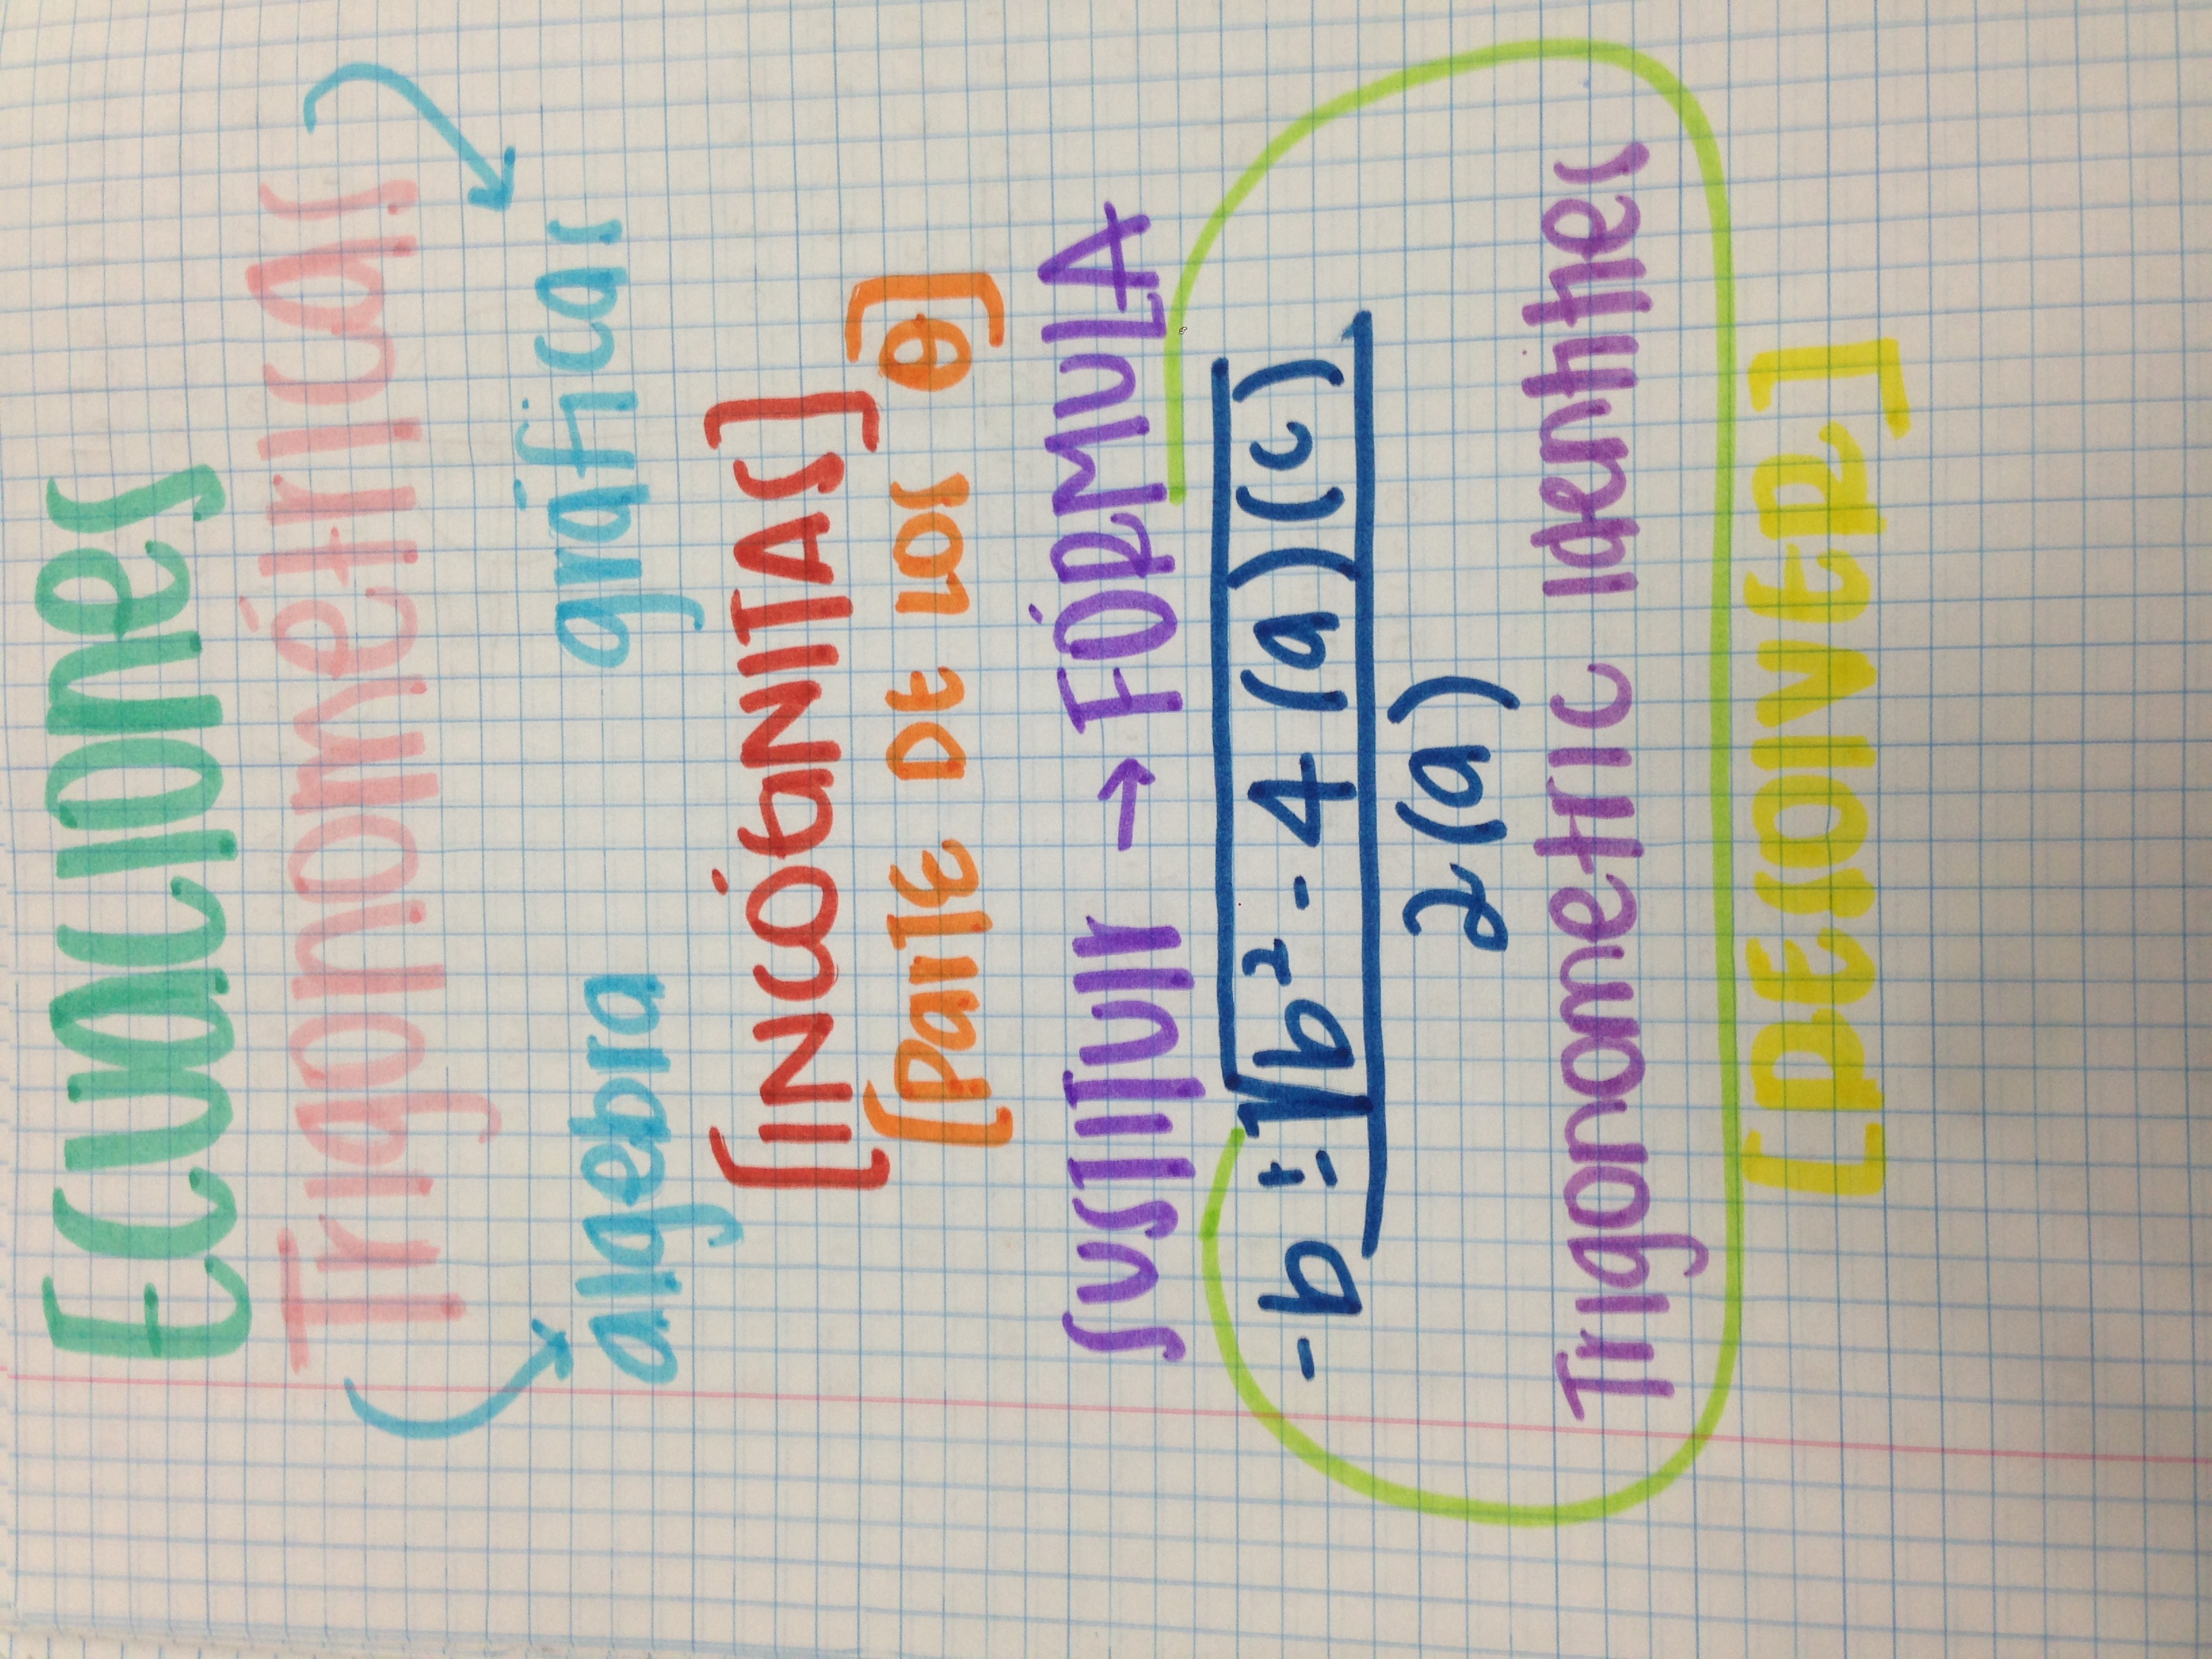 Ecuaciones
Trigonométricas
algebra gráficas
[INCÓGNITAS]
[Parte DE LOS θ]
SUSTITUIR → FÓRMULA
-b ± √b² - 4 (a)(c)
2(a)
Trigonometric Identities
[RESOLVER]